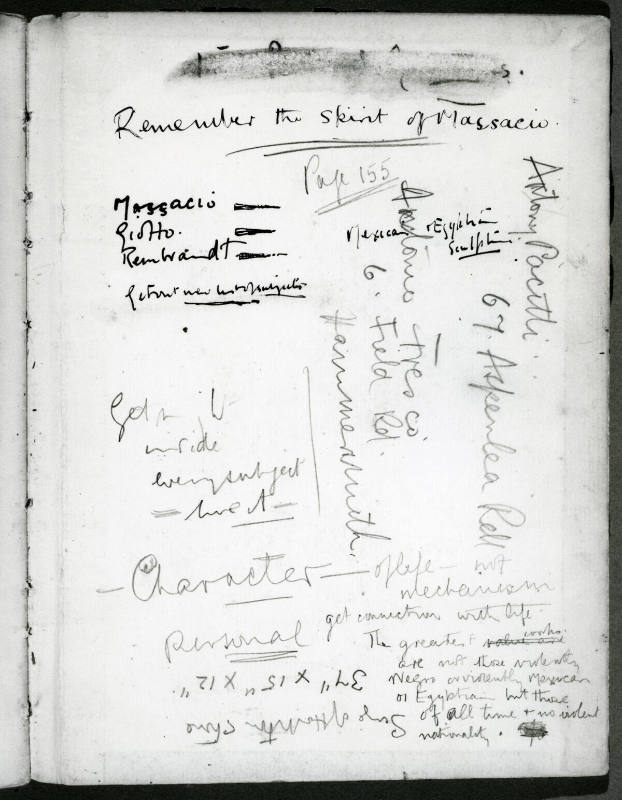 Remember the spirit of Massacio.
Page 155
Massacio
Giotto.
Rembrandt
Mexican + Egyptian
Sculpture
Get out new list of subjects
Antonio Fresco.
6. Field Rd.
Hammersmith.
Antony Pacitti.
67. Aspenlea Rd
Get
inside
every subject
= live it =
— Character — of life — not
mechanism
get connection with life.
Personal
The greatest works
value are
are not those violently
Negro or violently Mexican
or Egyptian but those
of all time + no violent
nationality.
34" x 15" x 12"